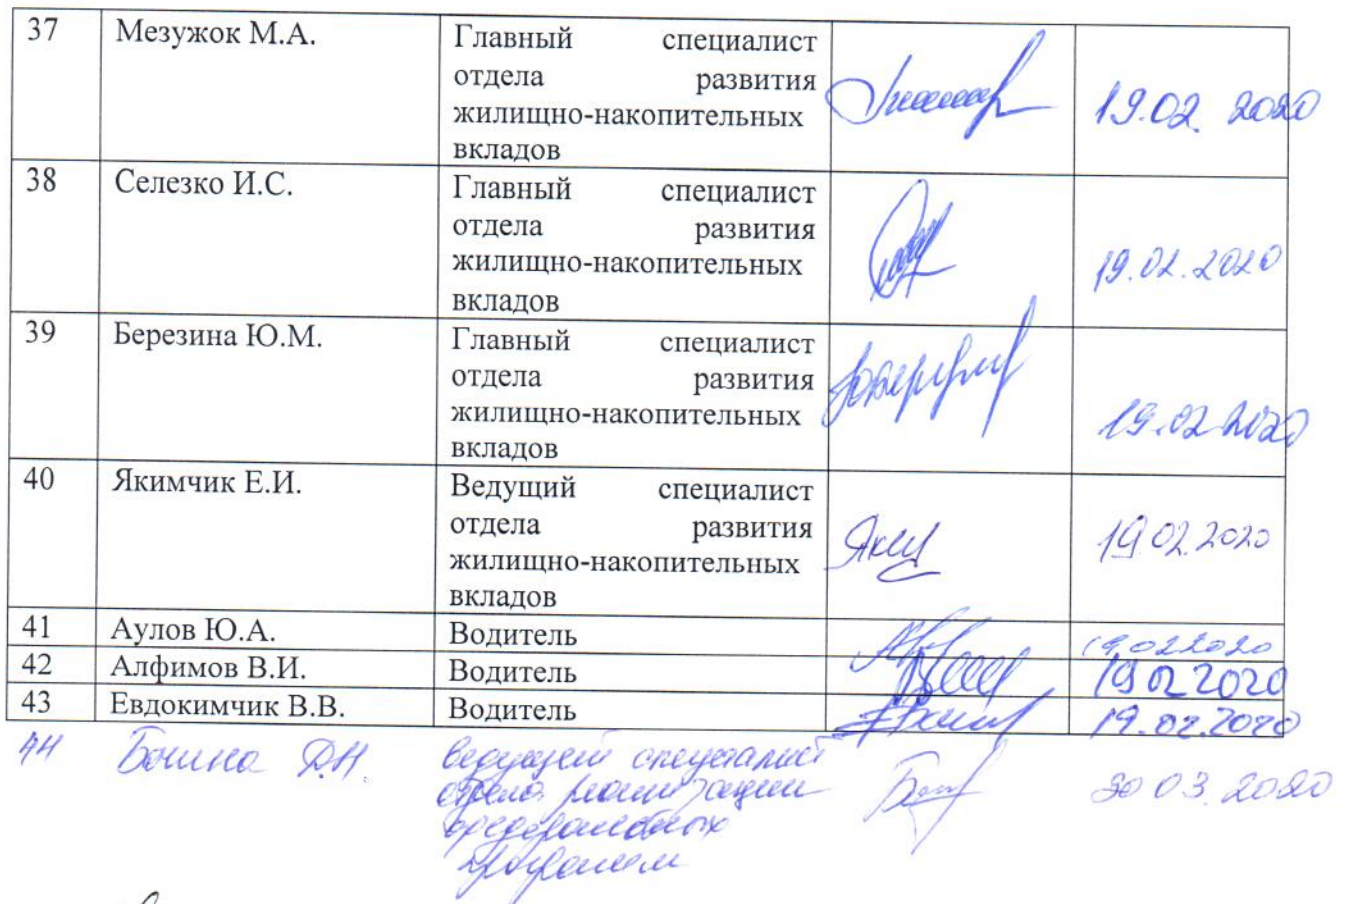 37 Мезужок М.А. Главный специалист
отдела развития
жилищно-накопительных
вкладов
19.02.2020
38 Селезко И.С. Главный специалист
отдела развития
жилищно-накопительных
вкладов
19.02.2020
39 Березина Ю.М. Главный специалист
отдела развития
жилищно-накопительных
вкладов
19.02.2020
40 Якимчик Е.И. Ведущий специалист
отдела развития
жилищно-накопительных
вкладов
19.02.2020
41 Аулов Ю.А. Водитель 19.02.2020
42 Алфимов В.И. Водитель 19.02.2020
43 Евдокимчик В.В. Водитель 19.02.2020
44 Д.Н. ведущий специалист 03.2020
отдела реализации
федеральных
программ